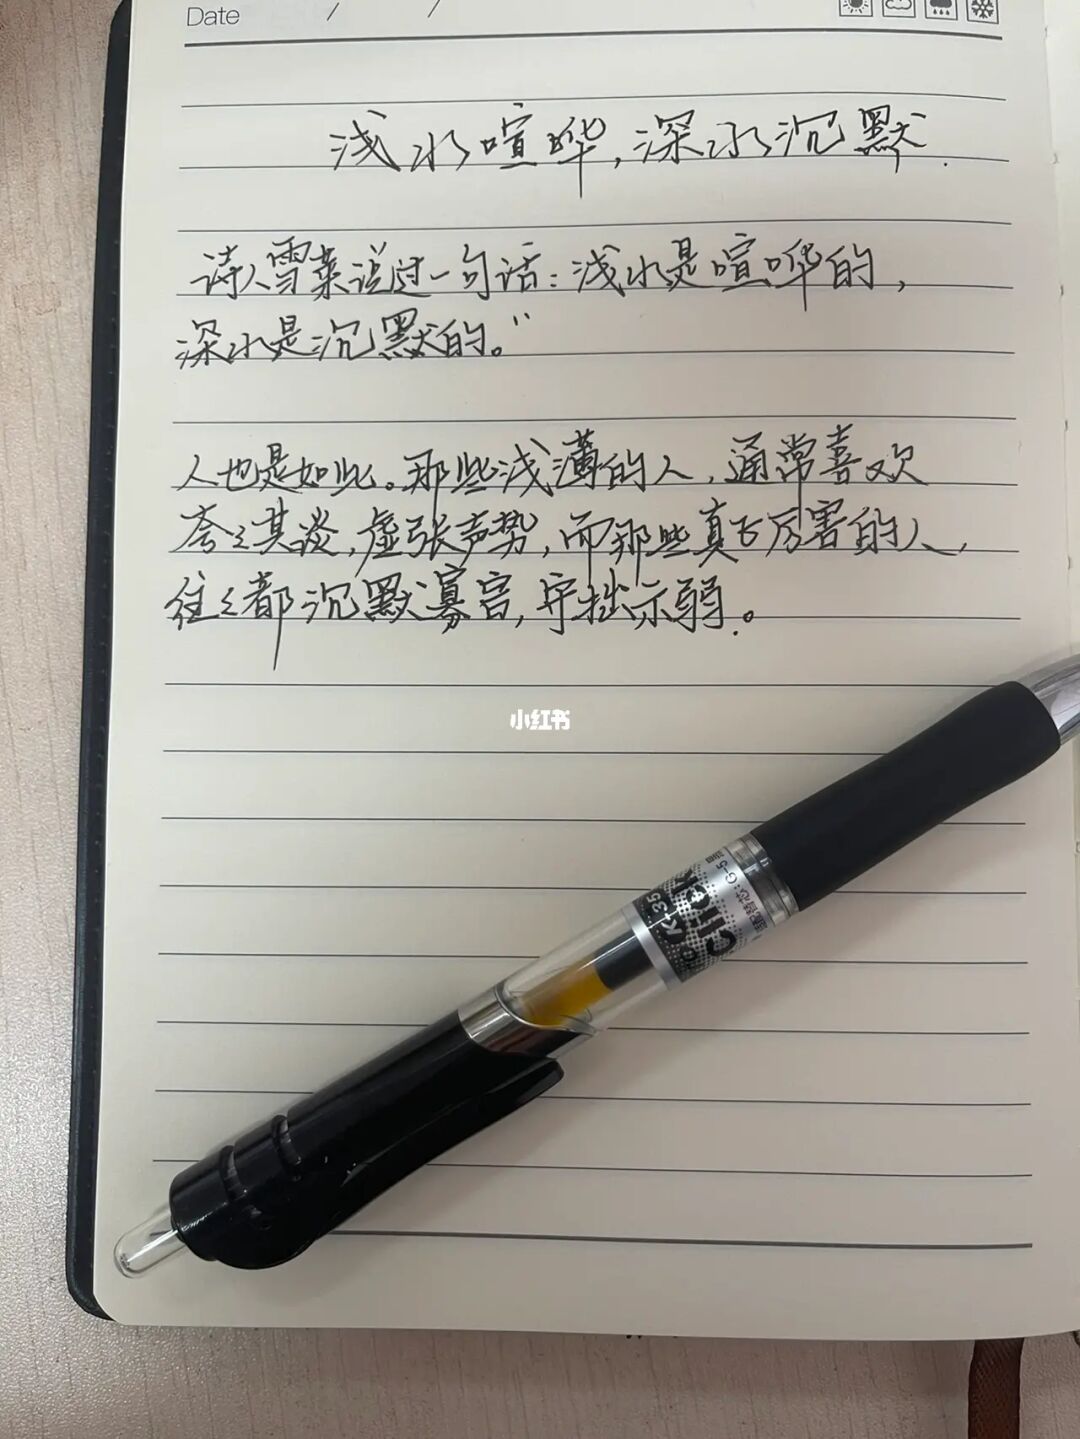 Date / /
浅水喧哗,深水沉默.
诗人雪莱说过一句话:浅水是喧哗的,
深水是沉默的。"
人也是如此。那些浅薄的人,通常喜欢
夸夸其谈,虚张声势,而那些真正厉害的人,
往往都沉默寡言,守拙示弱。
小红书
K-35
Click
配替芯:G-5